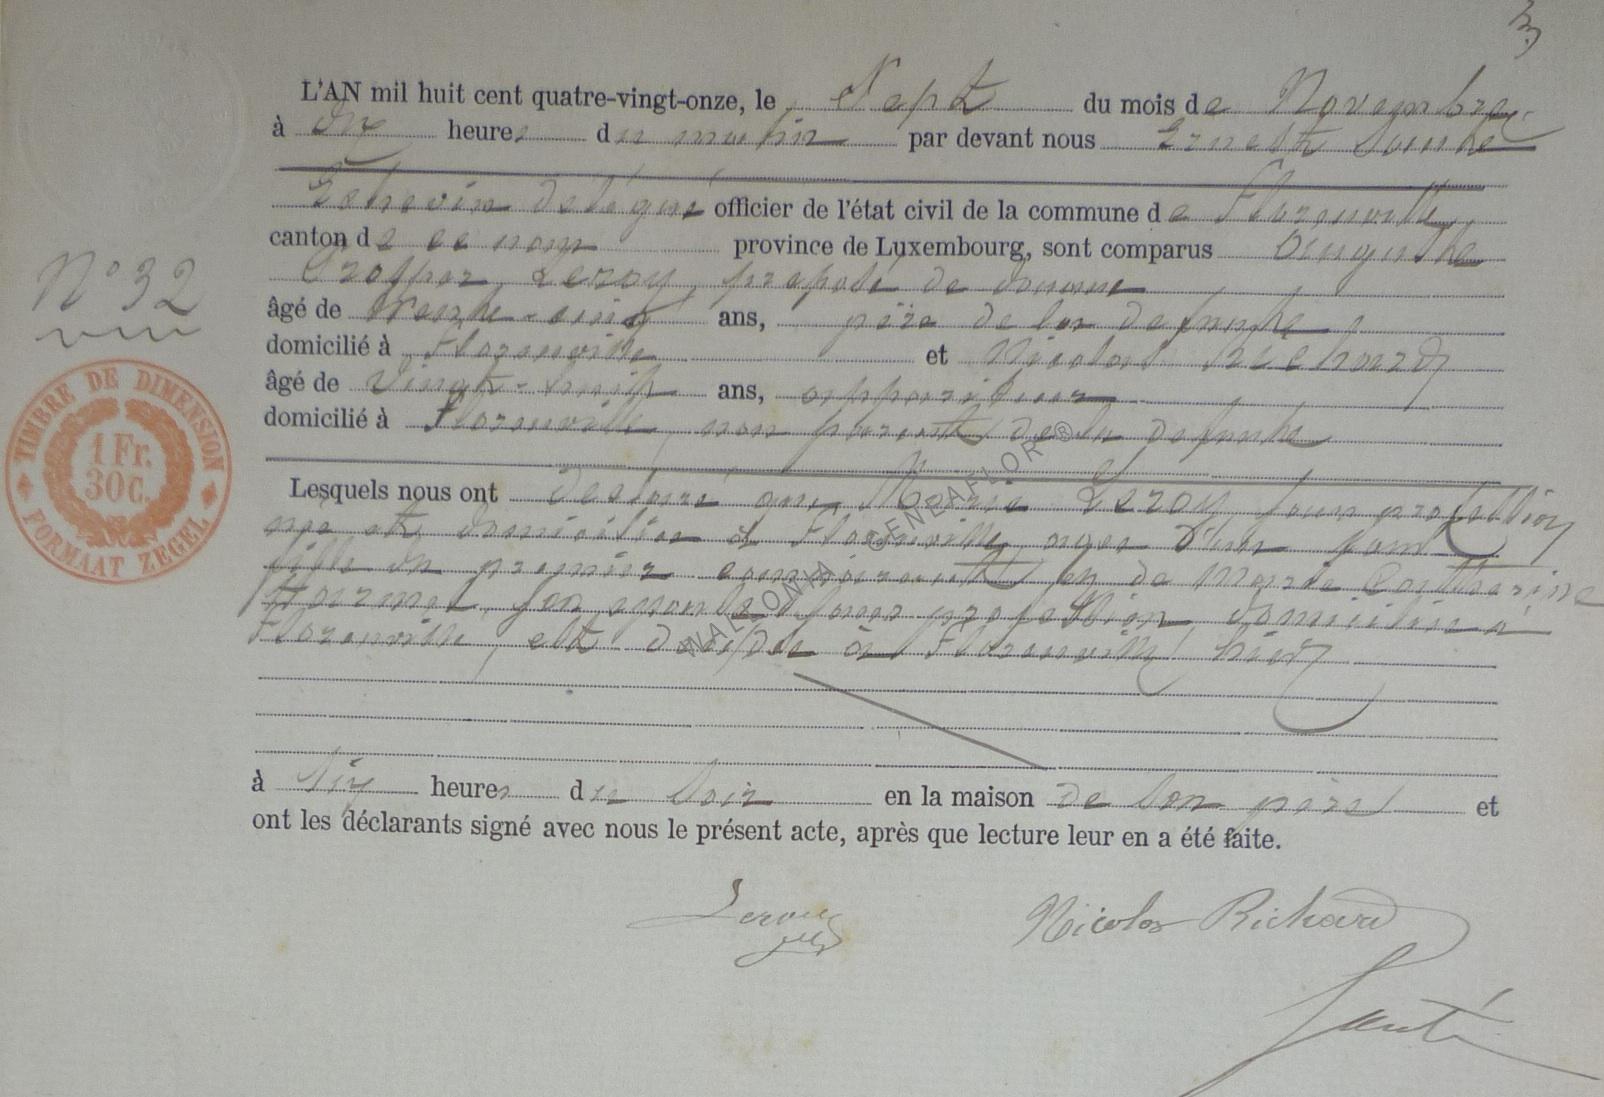 3
L'AN mil huit cent quatre-vingt-onze, le Sept du mois de Novembre
à dix heures du matin par devant nous Ernest Santé
Echevin délégué officier de l'état civil de la commune de Florenville,
canton de ce nom province de Luxembourg, sont comparus Auguste
Prosper Leroy, préposé de douane
N° 32
âgé de trente-cinq ans, père de la défunte,
domicilié à Florenville et Nicolas Richard
âgé de vingt-huit ans, appariteur
domicilié à Florenville, non parent de la défunte
TIMBRE DE DIMENSION
1 Fr.
30 C.
FORMAAT ZEGEL
Lesquels nous ont déclaré que Marie Leroy, sans profession
née et domiciliée à Florenville, agée d'un jour
fille du premier comparant et de Marie Catherine
son épouse sans profession, domiciliée à
Florenville, est décédée à Florenville hier
à six heures du soir en la maison de son père et
ont les déclarants signé avec nous le présent acte, après que lecture leur en a été faite.
Leroy
Nicolas Richard
Santé
WALLONIA © GENEAFLOR ®